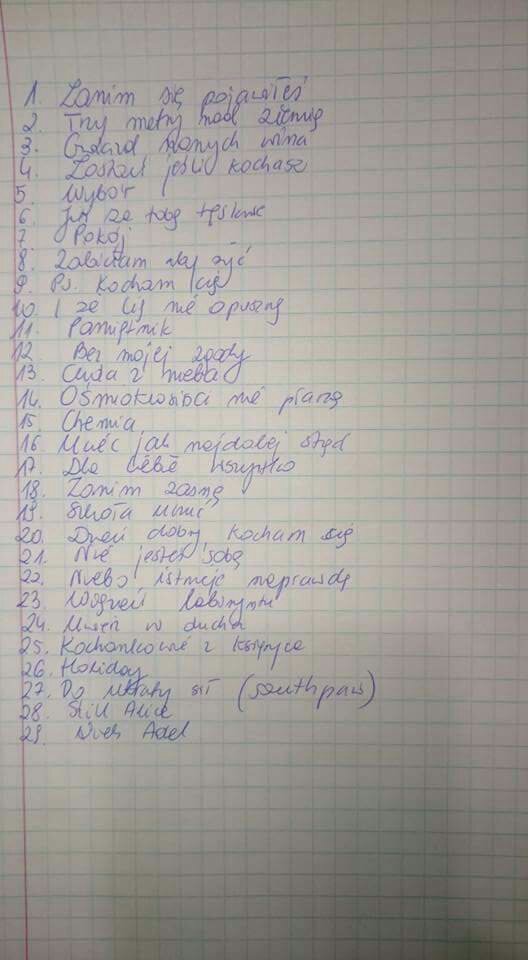 1. Zanim się pojawiłeś
2. Trzy metry nad ziemią
3. Gwiazd naszych wina
4. Zostań jeśli kochasz
5. Wybór
6. Jak za tobą tęsknie
7. Pokój
8. Zabiłam aby żyć
9. Ps. Kocham cię
10. I że cię nie opuszczę
11. Pamiętnik
12. Bez mojej zgody
13. Cuda z nieba
14. Ośmiokłasiści nie płaczą
15. Chemia
16. Mieć jak najdalej stąd
17. Dla ciebie wszystko
18. Zanim zasnę
19. Szkoła uczuć
20. Dzień dobry, kocham cię
21. Nie jesteś sobą
22. Niebo istnieje naprawdę
23. Więzień labiryntu
24. Uwierz w ducha
25. Kochankowie z księżyca
26. Holiday
27. Do utraty sił (southpaw)
28. Still Alice
29. Wiek Adel